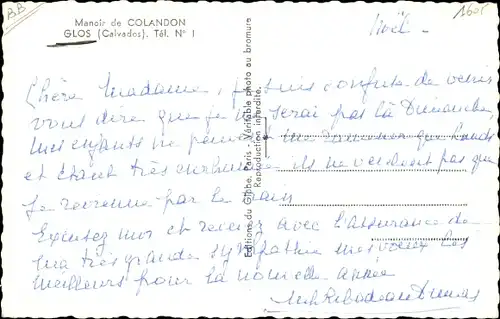 BB
Manoir de COLANDON
GLOS (Calvados). Tél. N° 1
Noël
Chère Madame, je suis confuse de venir
vous dire que je ne serai pas là Dimanche
mes enfants ne peuvent me ramener que Lundi
et étant très enrhumée ils ne veulent pas que
je revienne par le train
Excusez moi et recevez avec l'assurance de
ma très grande sympathie mes voeux les
meilleurs pour la nouvelle année
Editions du Globe, Paris - Véritable photo au bromure
Reproduction interdite.